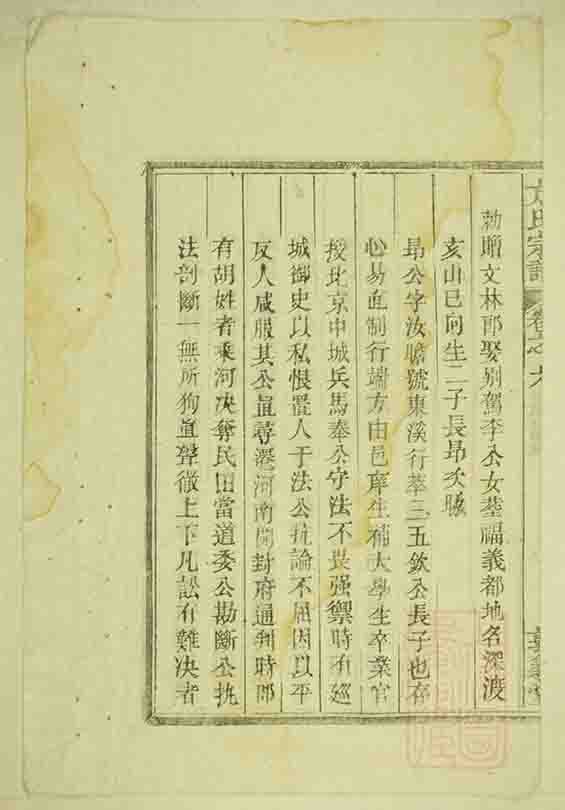 氏宗譜 卷之六
勅贈文林郎娶别駕李公女塟福義都地名深渡
亥山巳向生二子長昂次
昂公字汝瞻號東溪行莘三五欽公長子也存
心易直制行端方由邑庠生補大學生卒業官
授北京中城兵馬奉公守法不畏强禦時有廵
城御史以私恨置人于法公抗論不屈因以平
反人咸服其公直尋遷河南開封府通判時郡
有胡姓者乘河决奪民田當道委公勘斷公执
法剖斷一無所狥直聲徹上下凡訟有難决者